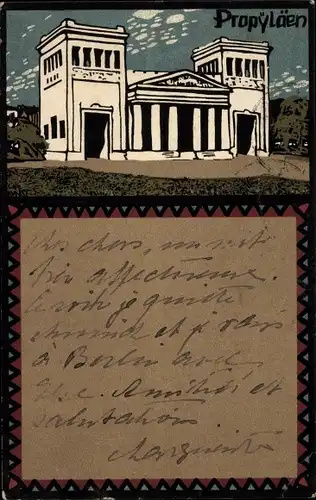 Propyläen
Mes chers, un mot
bien affectueux.
Ce soir je quitte
et je vais
à Berlin avec
Amitiés et
salutations